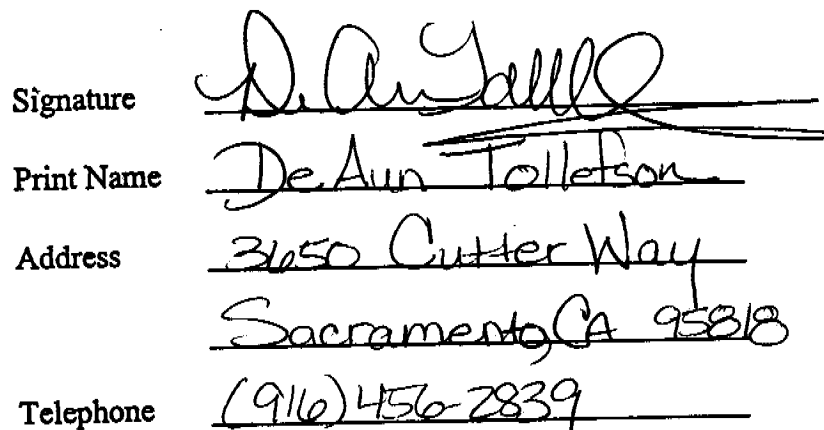 Signature DeAun Tolleſ
Print Name DeAun Tollefson
Address 3650 Cutter Way
Sacramento, CA 95818
Telephone (916) 456-2839